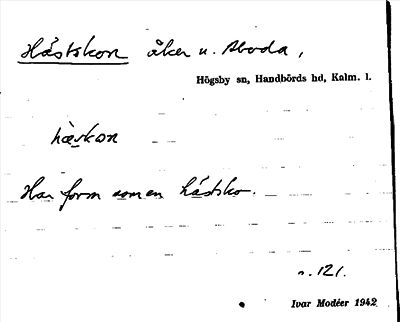 Hästskon åker u. Aboda,
Högsby sn, Handbörds hd, Kalm. l.
hæskon
Har form som en hästsko.
n. 121.
Ivar Modéer 1942